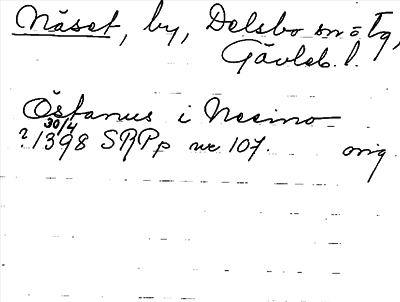 Näset, by, Delsbo sn o Tg,
Gävleb. l.
Östanus i Nesimo
30/4
? 1398 SRPp nr 107. orig